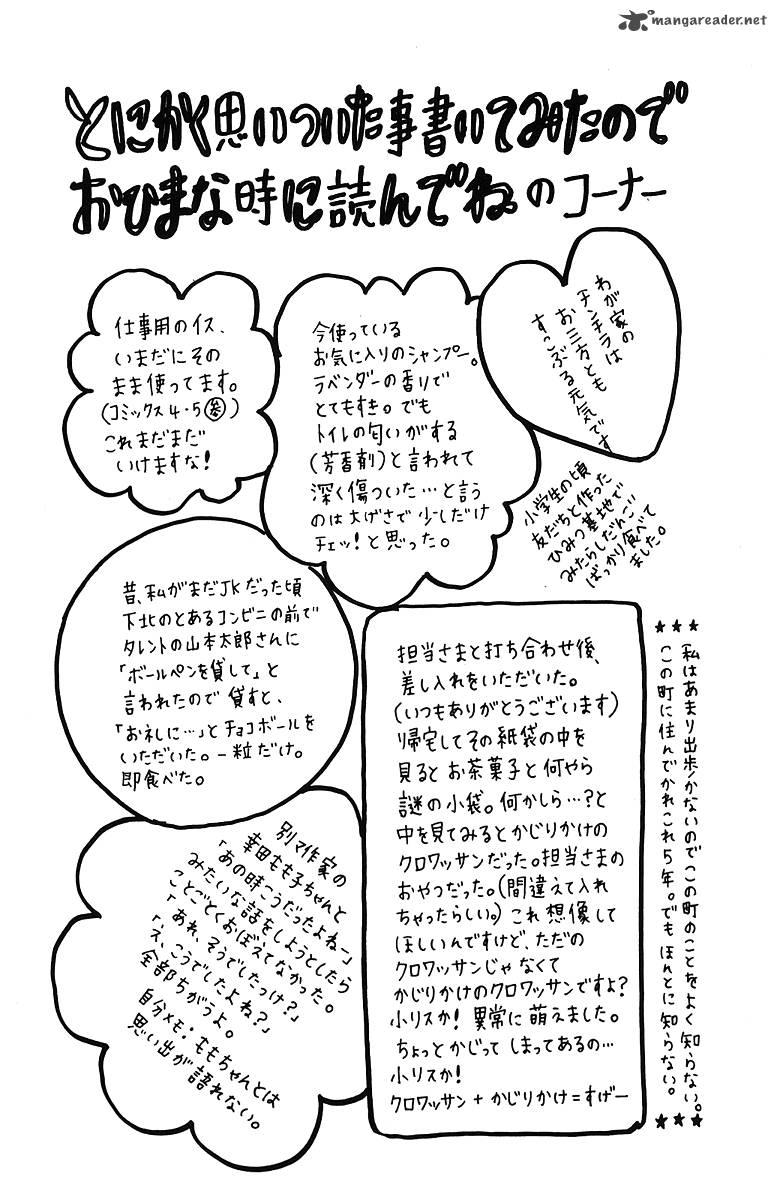 mangareader.net
とにかく思いついた事書いてみたので
おひまな時に読んでね。のコーナー
仕事用のイス、
いまだにその
まま使ってます。
(コミックス4・5㊂)
これまだまだ
いけますな!
今使っている
お気に入りのシャンプー。
ラベンダーの香りで
とてもすき。でも
トイレの匂いがする
(芳香剤)と言われて
深く傷ついた…と言う
のは大げさで少しだけ
チェッ!と思った。
わが家の
チンチラは
お三方とも
すこぶる元気です
小学生の頃
友だちと作った
ひみつ基地で
みたらしだんご
ばっかり食べて
ました。
昔、私がまだJKだった頃
下北のとあるコンビニの前で
タレントの山本太郎さんに
「ボールペンを貸して」と
言われたので貸すと、
「お礼に…」とチョコボールを
いただいた。一粒だけ。
即食べた。
担当さまと打ち合わせ後、
差し入れをいただいた。
(いつもありがとうございます)
帰宅してその紙袋の中を
見るとお茶菓子と何やら
謎の小袋。何かしら…?と
中を見てみるとかじりかけの
クロワッサンだった。担当さまの
おやつだった。(間違えて入れ
ちゃったらしい。)これ想像して
ほしいんですけど、ただの
クロワッサンじゃなくて
かじりかけのクロワッサンですよ?
小リスか!異常に萌えました。
ちょっとかじってしまってあるの…
小リスか!
クロワッサン+かじりかけ=すげー
★★★私はあまり出歩かないのでこの町のことをよく知らない。
この町に住んでかれこれ5年。でもほんとに知らない。★★★
別マ作家の
幸田もも子ちゃんと
「あの時こうだったよねー」
みたいな話をしようとしたら
ことごとくおぼえてなかった。
「あれ、そうでしたっけ?」
「え、こうでしたよね?」
全部ちがうよ。
自分メモ:ももちゃんとは
思い出が語れない。